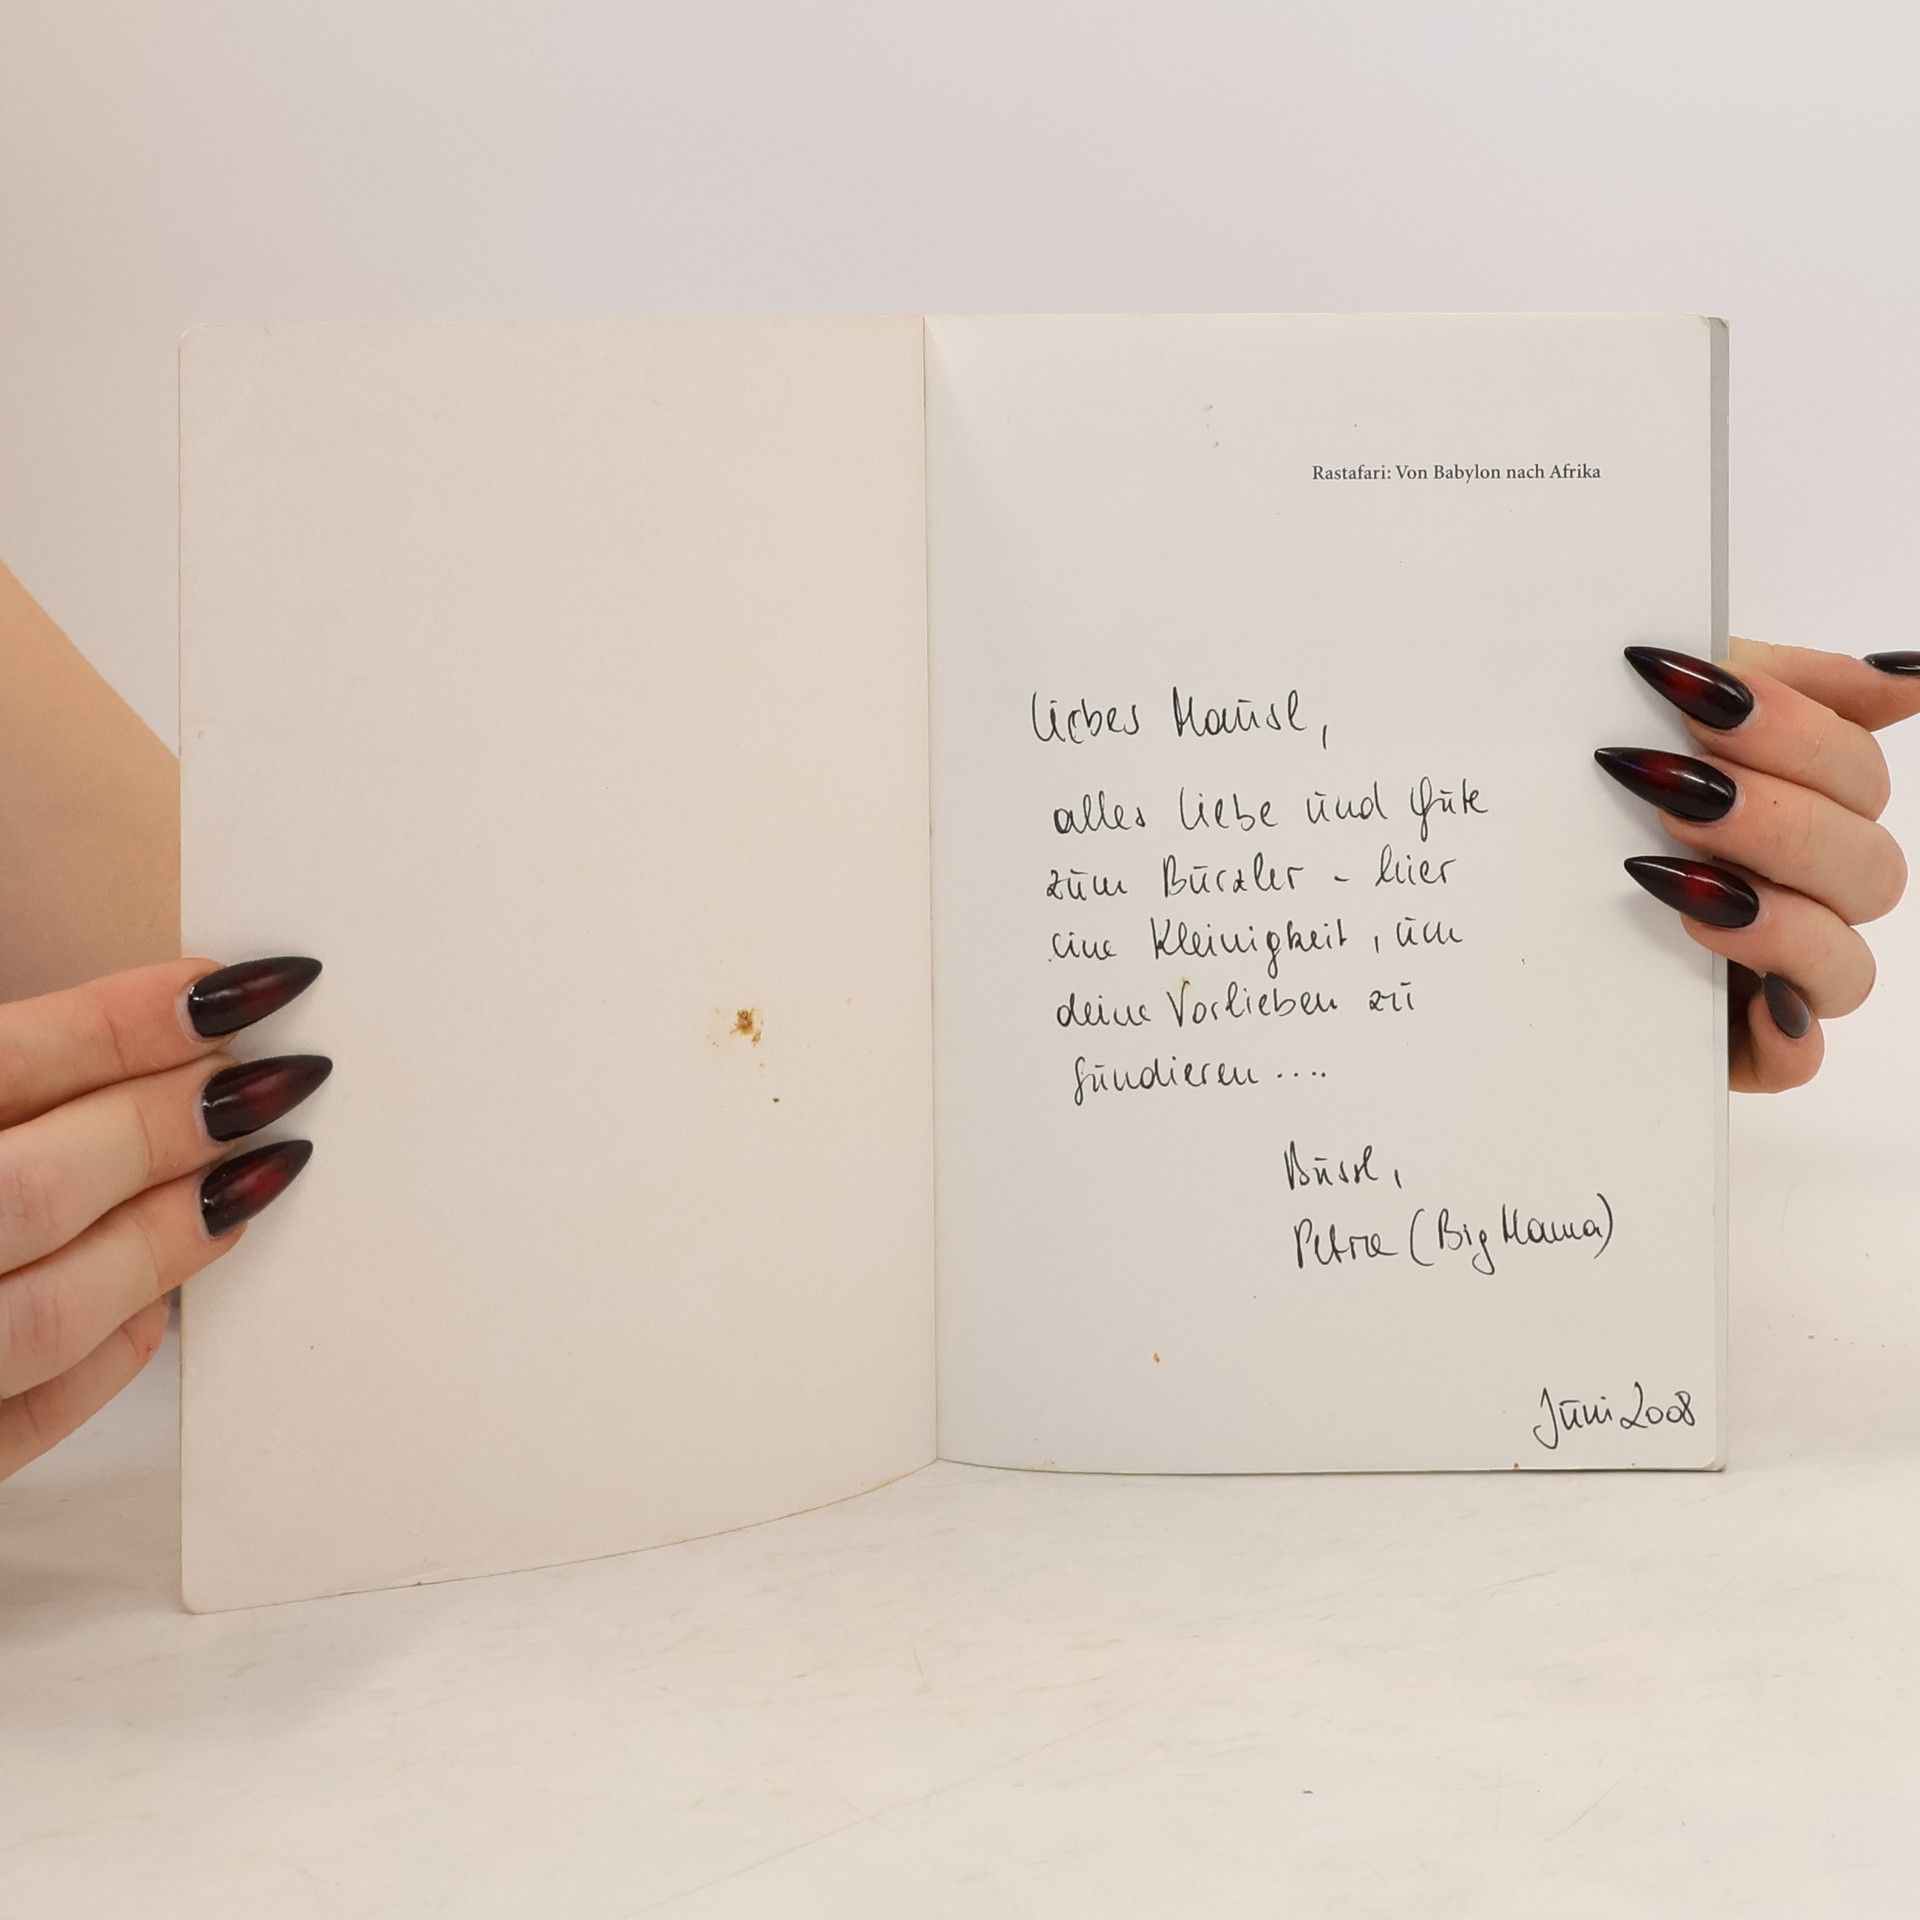 Rastafari: Von Babylon nach Afrika
liebes Mausl,
alles liebe und Gute
zum Burzler - hier
eine Kleinigkeit, um
deine Vorlieben zu
fundieren ....
Bussl,
Petra (Big Mama)
Juni 2008